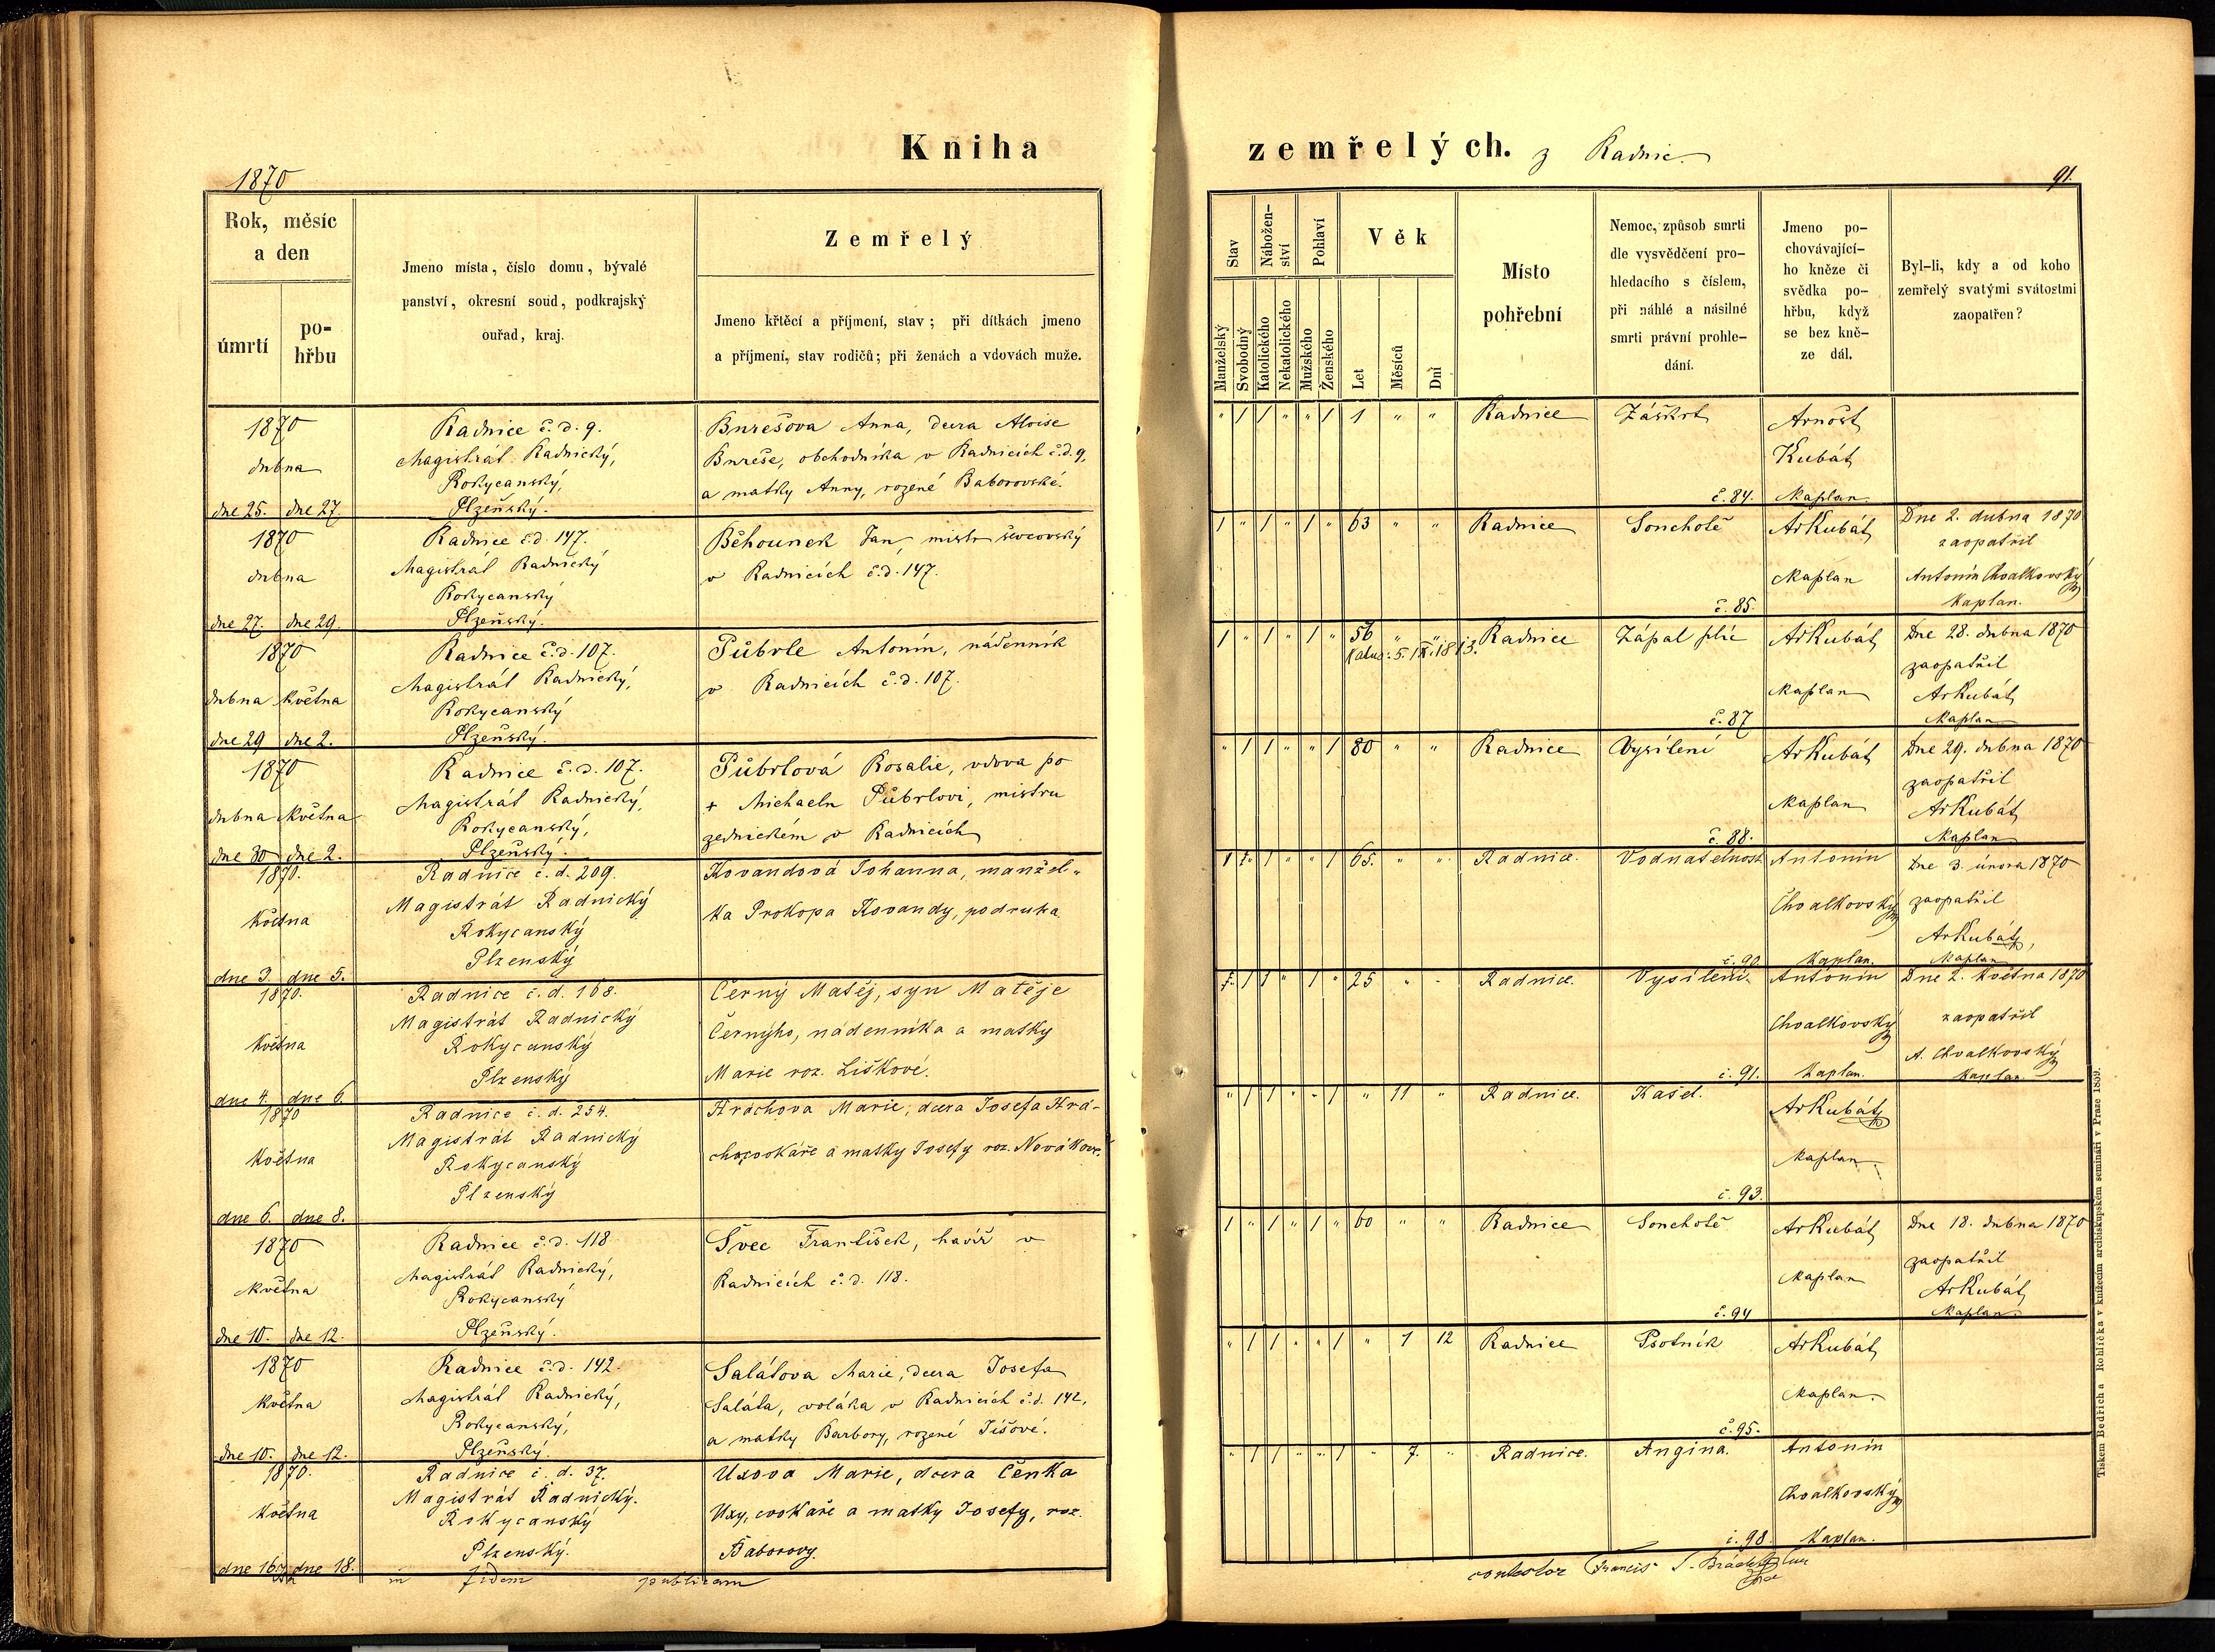 Kniha
zemřelých. z Radnic.
1870
91.
Rok, měsíc
a den
úmrtí
po-
hřbu
Jmeno místa, číslo domu, bývalé
panství, okresní soud, podkrajský
ouřad, kraj.
Zemřelý
Jmeno křtěcí a příjmení, stav; při dítkách jmeno
a příjmení, stav rodičů; při ženách a vdovách muže.
Stav
Manželský
Svobodný
Nábožen-
ství
Katolického
Nekatolického
Pohlaví
Mužského
Ženského
Věk
Let
Měsíců
Dní
Místo
pohřební
Nemoc, způsob smrti
dle vysvědčení pro-
hledacího s číslem,
při náhlé a násilné
smrti právní prohle-
dání.
Jmeno po-
chovávající-
ho kněze či
svědka po-
hřbu, když
se bez kně-
ze dál.
Byl-li, kdy a od koho
zemřelý svatými svátostmi
zaopatřen?
1870
dubna
dne 25. dne 27.
Radnice č. d. 9.
Magistrát Radnický,
Rokycanský,
Plzeňský.
Burešova Anna, dcera Aloise
Bureše, obchodníka v Radnicích č.d. 9,
a matky Anny, rozené Baborovské.
" 1 1 " " 1 1 " "
Radnice
Záškrt
č. 84.
Arnošt
Kubát
Kaplan.
1870
dubna
dne 27. dne 29.
Radnice č.d. 147.
Magistrát Radnický
Rokycanský
Plzeňský.
Běhounek Jan, mistr ševcovský
v Radnicích č.d. 147.
1 " 1 " 1 " 63 " "
Radnice
Souchotě
č. 85.
ArKubát
Kaplan
Dne 2. dubna 1870
zaopatřil
Antonín Chvalkovský
Kaplan.
1870
dubna května
dne 29 dne 2.
Radnice č.d. 107.
Magistrát Radnický,
Rokycanský
Plzeňský.
Půbrle Antonín, nádenník
v Radnicích č.d. 107.
1 " 1 " 1 " 56 " "
5. IX. 1813.
Radnice
Zápal plic
č. 87
ArKubát
Kaplan
Dne 28. dubna 1870
zaopatřil
ArKubát
Kaplan
1870
dubna května
dne 30 dne 2.
Radnice č.d. 107.
Magistrát Radnický,
Rokycanský,
Plzeňský.
Půbrlová Rosalie, vdova po
+ Michaelu Půbrlovi, mistru
zednickém v Radnicích
" 1 1 " " 1 80 " "
Radnice
Vysílení
č. 88.
ArKubát
Kaplan
Dne 29. dubna 1870
zaopatřil
ArKubát
Kaplan
1870.
Května
dne 3. dne 5.
Radnice č. d. 209.
Magistrát Radnický
Rokycanský
Plzenský
Kovandová Johanna, manžel-
ka Prokopa Kovandy, podruha
1 1 " " 1 65. " "
Radnice.
Vodnatelnost
č. 90
Antonín
Chvalkovský
Kaplan.
Dne 3. února 1870
zaopatřil
ArKubát,
Kaplan
1870.
Května
dne 4. dne 6.
Radnice č. d. 168.
Magistrát Radnický
Rokycanský
Plzenský
Černý Matěj, syn Matěje
Černýho, nádenníka a matky
Marie roz. Liškové.
1 1 " 1 " 25 " "
Radnice.
Vysílení.
č. 91.
Antonín
Chvalkovský
Kaplan.
Dne 2. Května 1870
zaopatřil
A. Chvalkovský
Kaplan.
1870
Května
dne 6. dne 8.
Radnice č. d. 254.
Magistrát Radnický
Rokycanský
Plzenský
Hráchova Marie, dcera Josefa Hrá-
cha, cvokáře a matky Josefy roz. Novákove.
" 1 1 " " 1 " 11 "
Radnice.
Kašel.
č. 93.
ArKubát
Kaplan.
1870
Května
dne 10. dne 12.
Radnice č.d. 118
Magistrát Radnický,
Rokycanský
Plzeňský.
Švec František, havíř v
Radnicích č. d. 118.
1 " 1 " 1 " 60 " "
Radnice
Souchotě
č. 94
ArKubát
Kaplan
Dne 18. dubna 1870
zaopatřil
ArKubát
Kaplan.
1870
Května
dne 10. dne 12.
Radnice č.d. 142.
Magistrát Radnický,
Rokycanský,
Plzeňský.
Salátova Marie, dcera Josefa
Saláta, voláka v Radnicích č.d. 142,
a matky Barbory, rozené Tišové.
" 1 1 " " 1 " 1 12
Radnice
Psotník
č. 95.
ArKubát
Kaplan.
1870.
Května
dne 16. dne 18.
Radnice č. d. 37.
Magistrát Radnický.
Rokycanský
Plzenský.
Uxova Marie, dcera Čenka
Uxy, cvokaře a matky Josefy, roz.
Baborovy.
" 1 1 " " 1 " 7. "
Radnice.
Angina.
č. 98.
Antonín
Chvalkovský
Kaplan.
in fidem publicam
contestor Francis
Tiskem Bedřicha Rohlíčka v knížecím arcibiskupském semináři v Praze 1859.